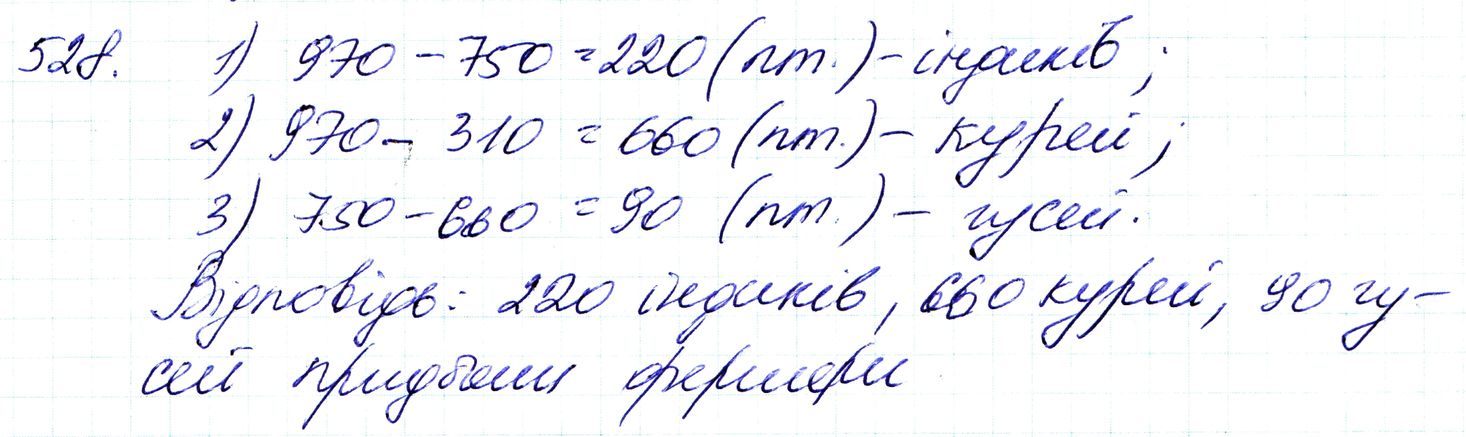 528. 1) 970 - 750 = 220 (пт.) - індиків;
2) 970 - 310 = 660 (пт.) - курей;
3) 750 - 660 = 90 (пт.) - гусей.
Відповідь: 220 індиків, 660 курей, 90 гу-
сей придбали фермери